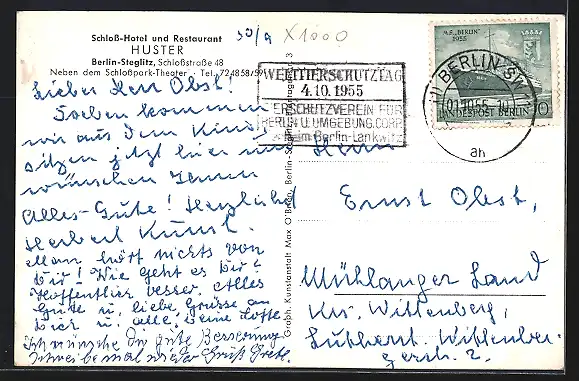 Schloß-Hotel und Restaurant
HUSTER
Berlin-Steglitz, Schloßstraße 48
Neben dem Schloßpark-Theater · Tel. 72 48 58/59
X1000
Lieber Herr Obst!
Soeben kommen
wir aus dem Kino
sitzen jetzt hier und
wünschen Ihnen
Alles-Gute! Herzlichst
Herbert Kunst.
Man hört nichts von
Dir! Wie geht es Dir?
Hoffentlich besser. Alles
Gute u. liebe Grüsse an
Dich u. alle. Deine Lotte
Ich wünsche Dir gute Besserung
Schreibe mal wieder Gruß Grete.
Graph. Kunstanstalt Max O'Brien, Berlin-Steglitz
WELTTIERSCHUTZTAG
4.10.1955
TIERSCHUTZVEREIN FÜR
BERLIN U. UMGEBUNG CORP.
heim Berlin-Lankwitz
M.S. "BERLIN"
1955
10
LANDESPOST BERLIN
(1) BERLIN SW
01.10.55
ah
Herrn
Ernst Obst,
Mühlanger Land
Krs. Wittenberg,
Lutherst. Wittenber-
gerstr. 2.